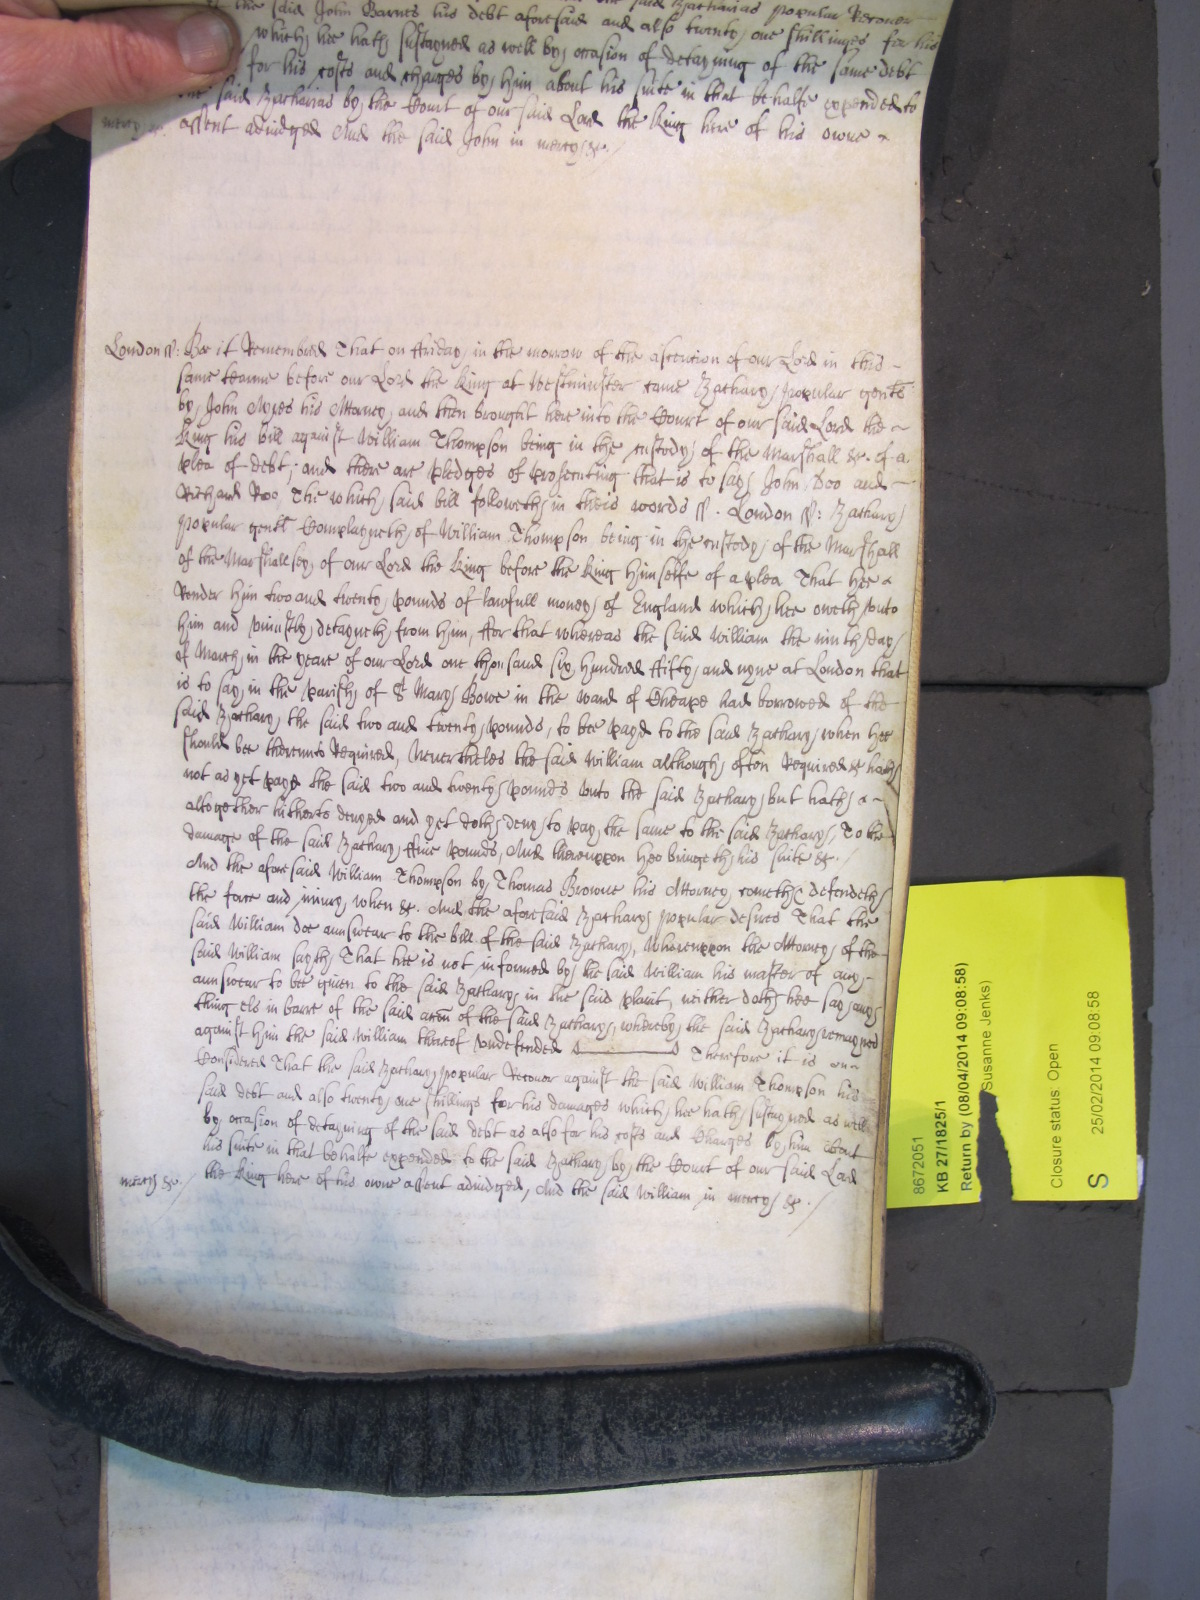 the said Zacharias Popular Recover
the said John Barnes his debt aforesaid and also twenty one shillinges for his
which hee hath susteyned as well by occasion of detayning of the same debt
for his costs and charges by him about his suite in that behalfe expended to
the said Zacharias by the Court of our said Lord the King here of his owne
mercy &c. assent adiudged And the said John in mercy &c.
London ss: Bee it Remembred That on ffriday in the morrow of the ascention of our Lord in this
same tearme before our Lord the King at Westminster came Zachary Popular gentl
by John Ayres his Attorney, and then brought here into the Court of our said Lord the
King his bill against William Thompson being in the custody of the Marshall &c. of a
plea of debt, and there are pledges of prosecuting that is to say John Doo and
Richard Roo, The which said bill followeth in theis words ss. London ss: Zachary
Popular gentl Complayneth of William Thompson being in the custody of the Marshall
of the Marshallsey of our Lord the King before the King himselfe of a plea That hee
Render him two and twenty pounds of lawfull money of England which hee oweth vnto
him and vniustly detayneth from him, ffor that whereas the said William the ninth day
of March in the yeare of our Lord one thousand six hundred ffifty and nyne at London that
is to say in the parish of St Mary Bowe in the ward of Cheape had borrowed of the
said Zachary the said two and twenty pounds, to bee payd to the said Zachary when hee
should bee thereunto Required, Neuertheles the said William although often Required &c hath
not as yet payd the said two and twenty pounds vnto the said Zachary but hath
altogether hitherto denyed and yet doth deny to pay the same to the said Zachary, To the
damage of the said Zachary ffiue pounds, And thereuppon hee bringeth his suite &c.
And the aforesaid William Thompson by Thomas Browne his Attorney cometh & defendeth
the force and iniury when &c. And the aforesaid Zachary Popular desires That the
said William doe aunswear to the bill of the said Zachary, Whereuppon the Attorney of the
said William sayth That hee is not informed by the said William his master of any
aunswear to bee giuen to the said Zachary in the said plaint, neither doth hee say any
thing els in barre of the said accon of the said Zachary, whereby the said Zachary remayned
against him the said William thereof vndefended Therefore it is
Considered That the said Zachary Popular Recouer against the said William Thompson his
said debt and also twenty one shillings for his damages which hee hath susteyned as well
by occasion of detayning of the said debt as also for his costs and Charges by him about
his suite in that behalfe expended to the said Zachary by the Court of our said Lord
mercy &c. the King here of his owne assent adiudged, And the said William in mercy &c.
8672051
KB 27/1825/1
Return by (08/04/2014 09:08:58)
Susanne Jenks)
Closure status: Open
S
25/02/2014 09:08:58